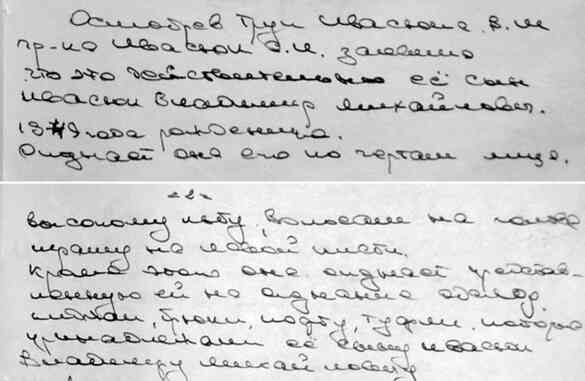 Осмотрев труп Ивасюка В.М
гр-ка Ивасюк С.И. заявила
что это действительно её сын
Ивасюк Владимир Михайлович.
1949 года рождения.
Опознает она его по чертам лица,
-2-
высокому лбу, волосам на голове
шраму на левой кисти.
Кроме этого она опознает предъяв-
ленную ей на опознание одежду.
брюки, туфли, которые
принадлежали её сыну Ивасюк
Владимиру Михайловичу